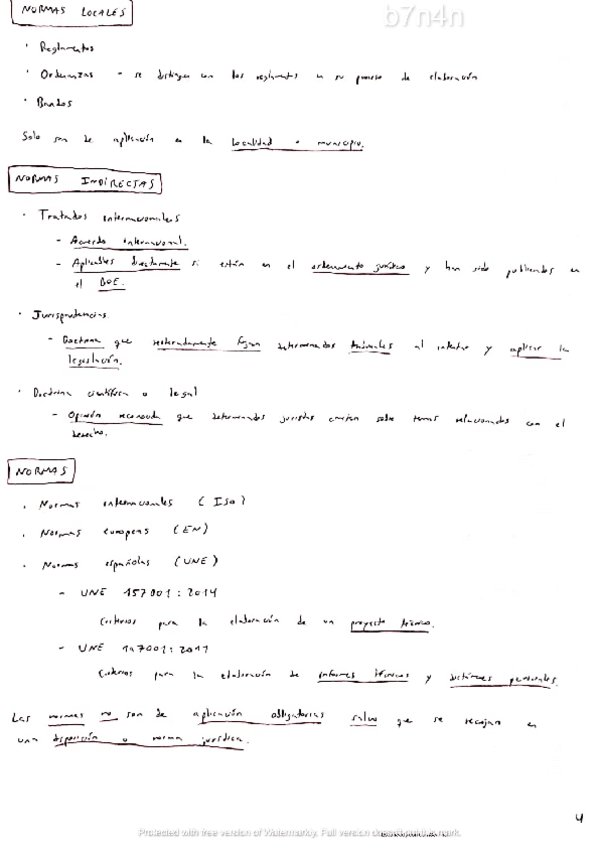 NORMAS LOCALES
b7n4n
· Reglamentos
· Ordenanzas - se distingue con los reglamentos en su proceso de elaboración
· Bandos
Solo son de aplicación en la localidad o municipio.
NORMAS INDIRECTAS
· Tratados internacionales
- Acuerdo internacional.
- Aplicables directamente si están en el ordenamiento jurídico y han sido publicados en
el BOE.
· Jurisprudencias.
- Doctrina que reiteradamente fijan determinados tribunales al interpretar y aplicar la
legislación.
· Doctrina científica o legal
- Opinión reconocida que determinados juristas emiten sobre temas relacionados con el
derecho.
NORMAS
· Normas internacionales (ISO)
· Normas europeas (EN)
· Normas españolas (UNE)
- UNE 157001:2014
Criterios para la elaboración de un proyecto técnico.
- UNE 197001:2011
Criterios para la elaboración de informes técnicos y dictámenes periciales.
Las normas no son de aplicación obligatorias salvo que se recojan en
una disposición o norma jurídica.
4
Protected with free version of Watermarkly. Full version doesn't put this mark.